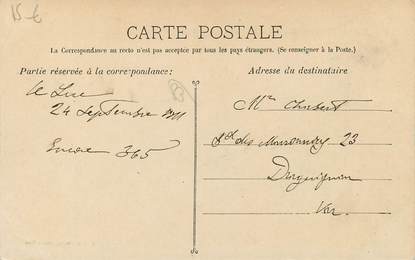 15 €
CARTE POSTALE
La Correspondance au recto n'est pas acceptée par tous les pays étrangers. (Se renseigner à la Poste.)
Partie réservée à la correspondance:
Adresse du destinataire
Le Luc
24 Septembre 1911
Encore 365
Mr Chabert
Bd des Marronniers 23
Draguignan
Var